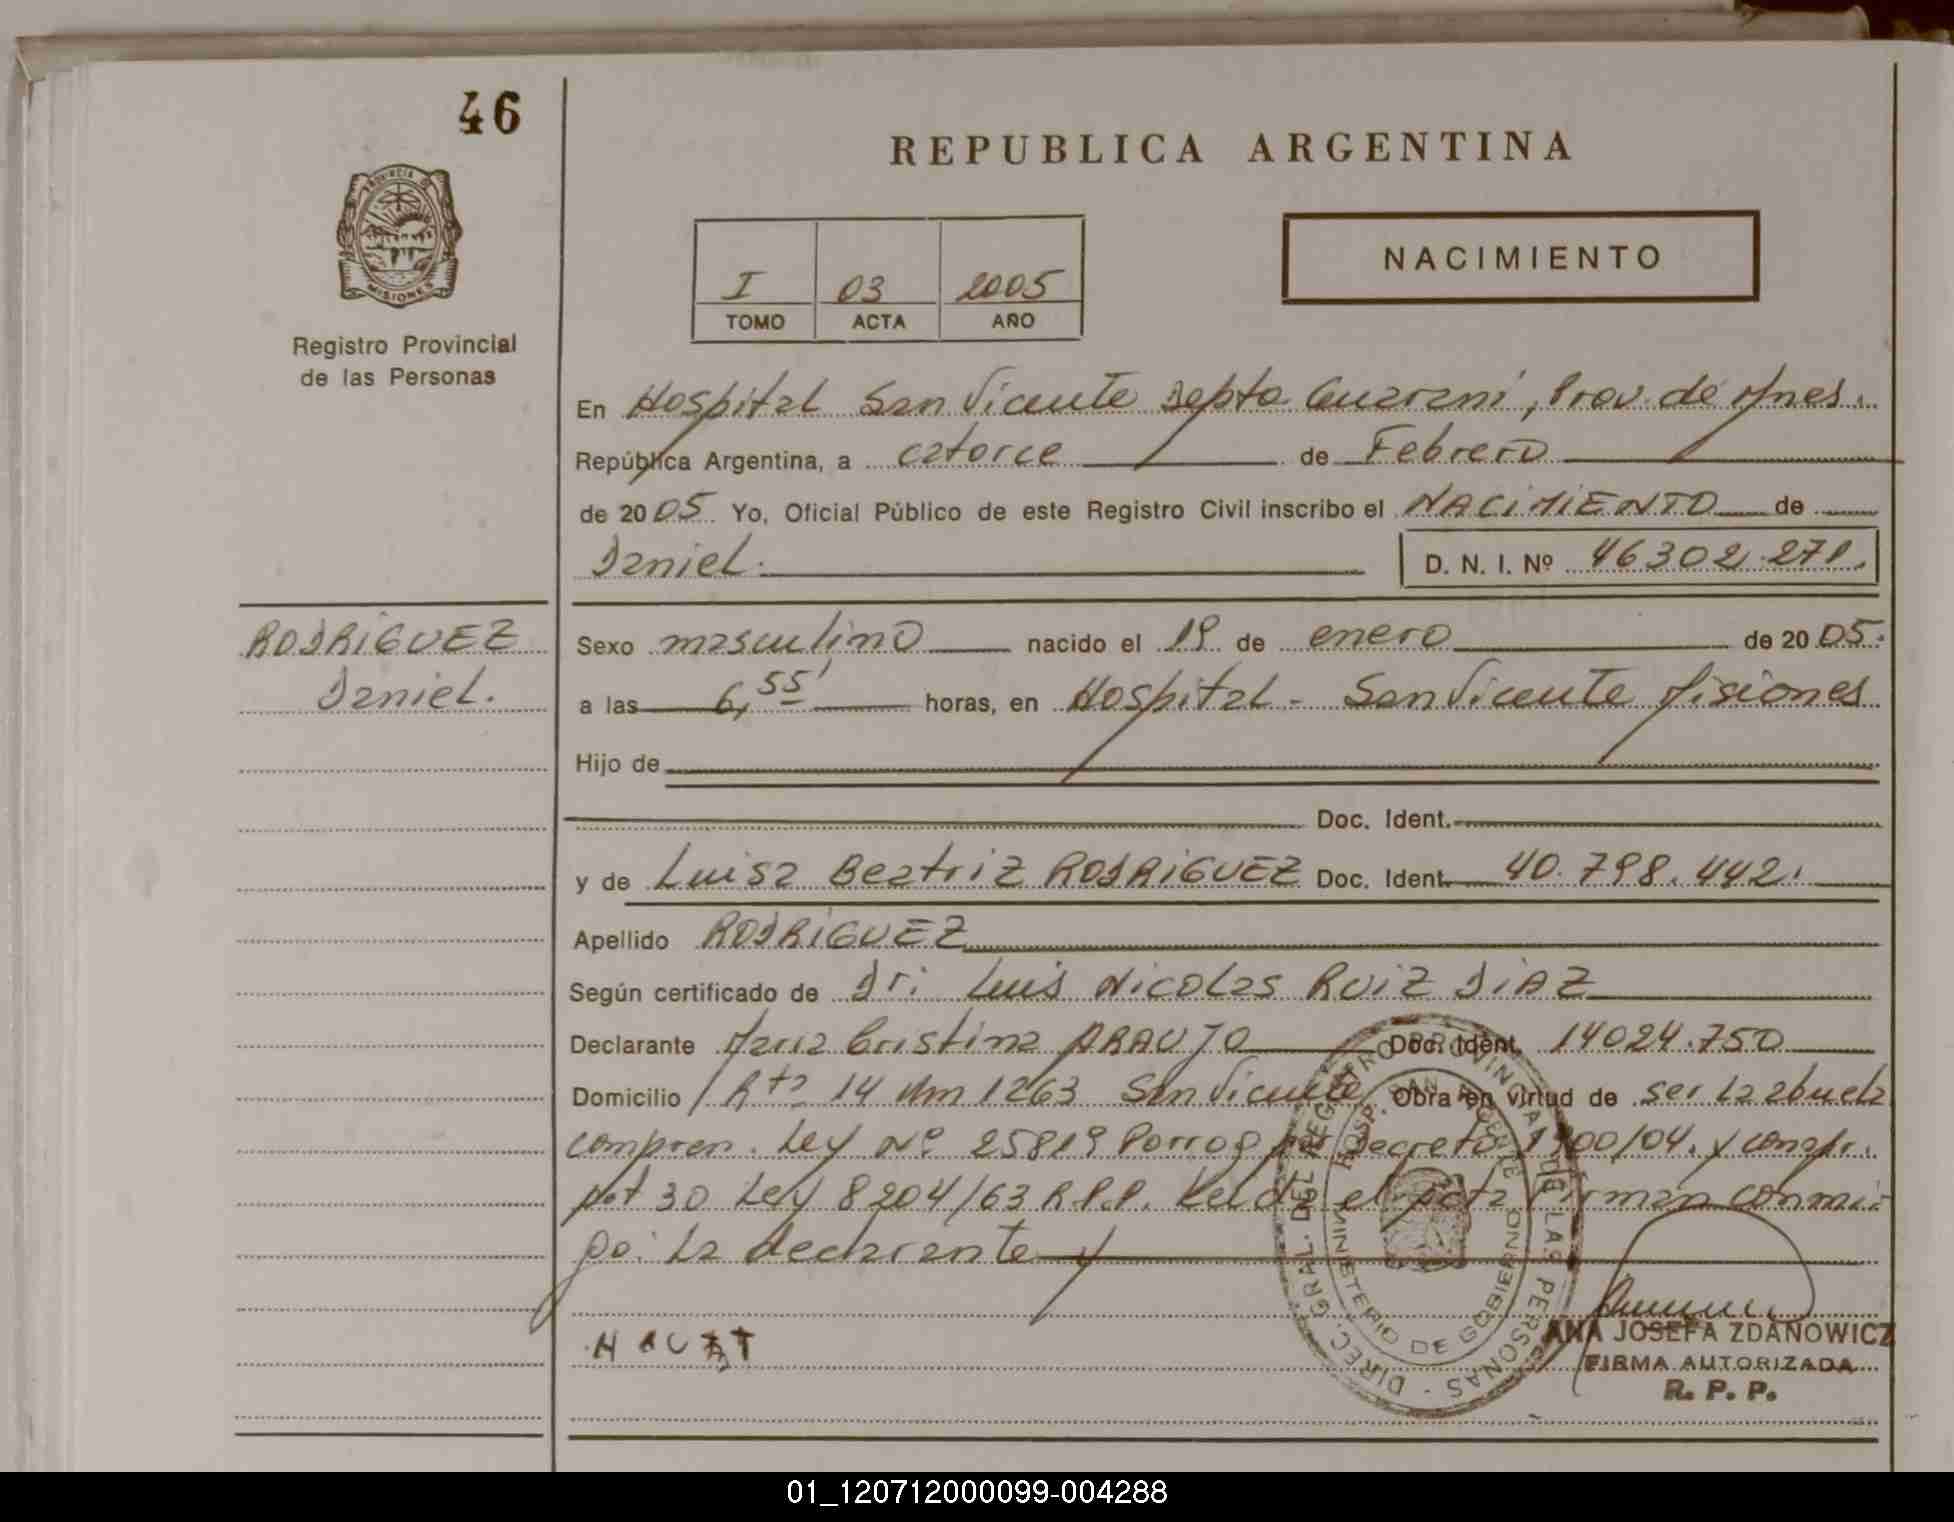 46
REPUBLICA ARGENTINA
PROVINCIA DE
MISIONES
Registro Provincial
de las Personas
NACIMIENTO
I 03 2005
TOMO ACTA AÑO
En Hospital San Vicente Depto Guarani, Prov. de Mnes.
República Argentina, a catorce de Febrero
de 2005. Yo, Oficial Público de este Registro Civil inscribo el NACIMIENTO de
Daniel. D. N. I. Nº 46302.271.
RODRIGUEZ
Daniel.
Sexo masculino nacido el 19 de enero de 2005.
a las 6,55' horas, en Hospital - San Vicente Misiones
Hijo de
Doc. Ident.
y de Luisa Beatriz RODRIGUEZ Doc. Ident. 40.798.442.
Apellido RODRIGUEZ
Según certificado de Dr: Luis Nicolas RUIZ DIAZ
Declarante Maria Cristina ARAUJO Doc. Ident. 14024.750
Domicilio Rta 14 Km 1263 San Vicente Obra en virtud de ser la abuela
compren. Ley Nº 25819 Porrog por Decreto 1900/04. y
30 Ley 8204/63 R.P.P. Leida el acta firman conmi-
go: La declarante y
DIREC. GRAL. DEL REGISTRO PROVINCIAL DE LAS PERSONAS
HOSP. SAN VICENTE
MINISTERIO DE GOBIERNO
ANA JOSEFA ZDANOWICZ
FIRMA AUTORIZADA
R. P. P.
01_120712000099-004288